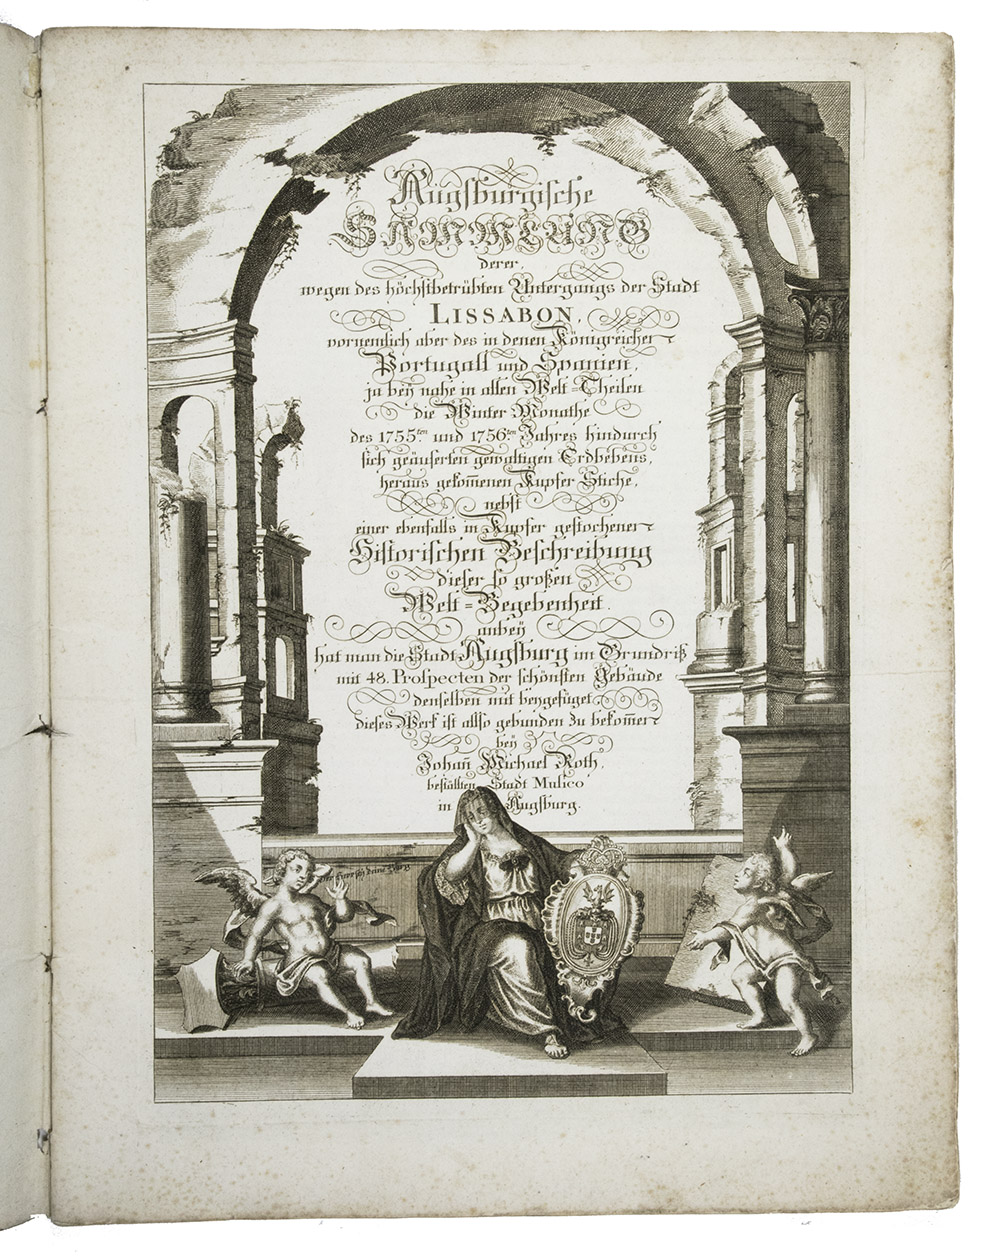 Augsburgische
SAMMLUNG
derer,
wegen des höchstbetrübten Untergangs der Stadt
LISSABON,
vornemlich aber des in denen Königreichen
Portugall und Spanien,
ja beÿ nahe in allen Welt=Theilen
die Winter Monathe
des 1755.ten und 1756.ten Jahres hindurch
sich geäuserten gewaltigen Erdbebens,
heraus gekom̅enen Kupfer Stiche,
nebst
einer ebenfalls in Kupfer gestochenen
Historischen Beschreibung
dieser so großen
Welt=Begebenheit.
anbeÿ
hat man die Stadt Augsburg im Grundriß
mit 48. Prospecten der schönsten Gebäude
denselben mit beygefüget,
dieses Werk ist allso gebunden zu bekom̅en
beÿ
Johan̅ Michael Roth,
beställten Stadt Musico
in Augsburg.